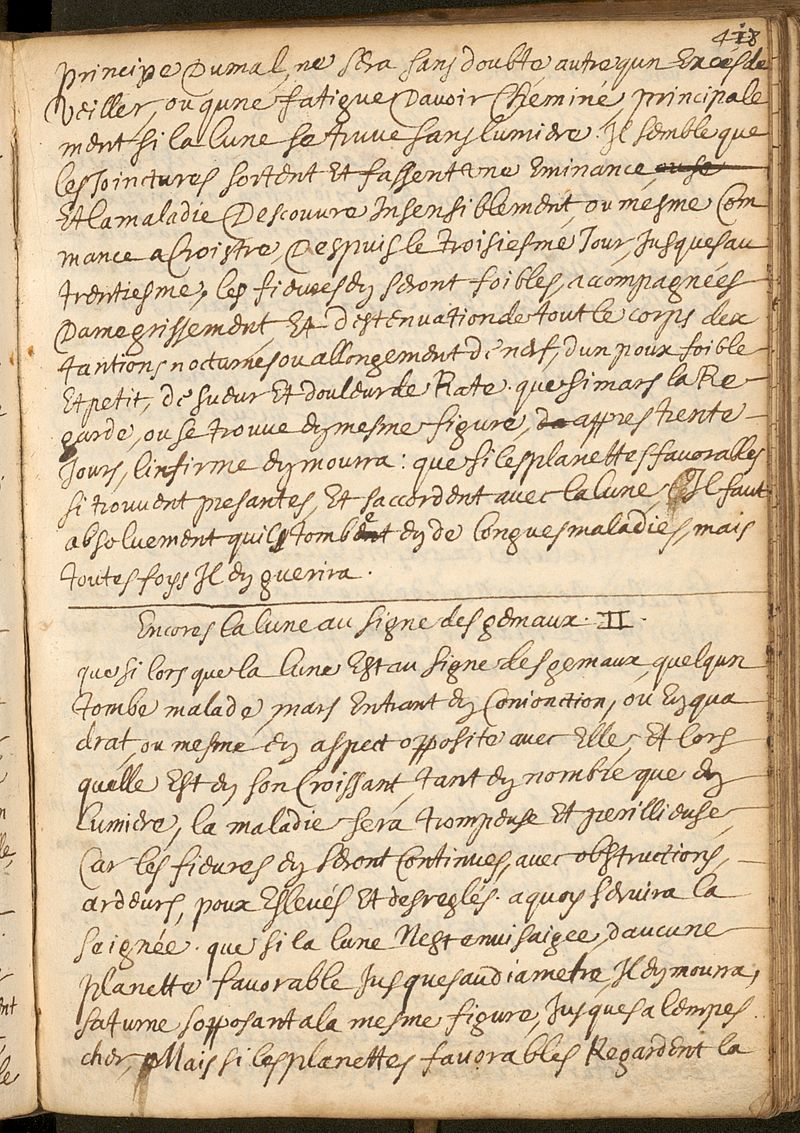 418
principe Dumal, ne sera sans doubte autre qun Exces de
Veiller, ou qune fatigue Davoir Cheminé, principale
ment si la lune se truve sans lumiere. Il semble que
les Joinctures sortent Et fassent une Eminance ou se
Et la maladie Descouvre Insensiblement, ou mesme Com
mance a Croistre, Despuis le troisiesme Jour, Jusques au
trentiesme, les fieures en seront foibles, acompagnées
Damegrissement, Et destenuation de tout le corps dex
tantions nocturnes ou allongement de nerf, dun poux foible
Et petit, de sueur Et douleur de Rate. que si mars la Re
garde, ou se trouve en mesme figure, da appres trente
Jours, linfirme en mourra: que si les planettes favorables
si trouvent presantes, Et saccordent avec la lune, Il faut
absoluement quils tombent en de longues maladies, mais
toutes foys Il en guerira.
Encores la lune au signe des gemaux. II.
que si lors que la lune Est au signe des gemaux, quelqun
tombe malade, mars Entrant en Conionction, ou en qua
drat, ou mesme en aspect opposite avec Elle, Et lors
quelle Est en son Croissant, tant en nombre que en
lumiere, la maladie sera trompeuse Et perillieuse,
Car les fieures en seront Continues, avec obstructions,
ardeurs, poux Eslevés Et desreglés. a quoy servira la
saignée. que si la lune Nest envisaigée, daucune
planette favorable Jusques au diametre, Il en mourra,
saturne sopposant a la mesme figure, Jusques a lempes
cher, Mais si les planettes favorables Regardent la